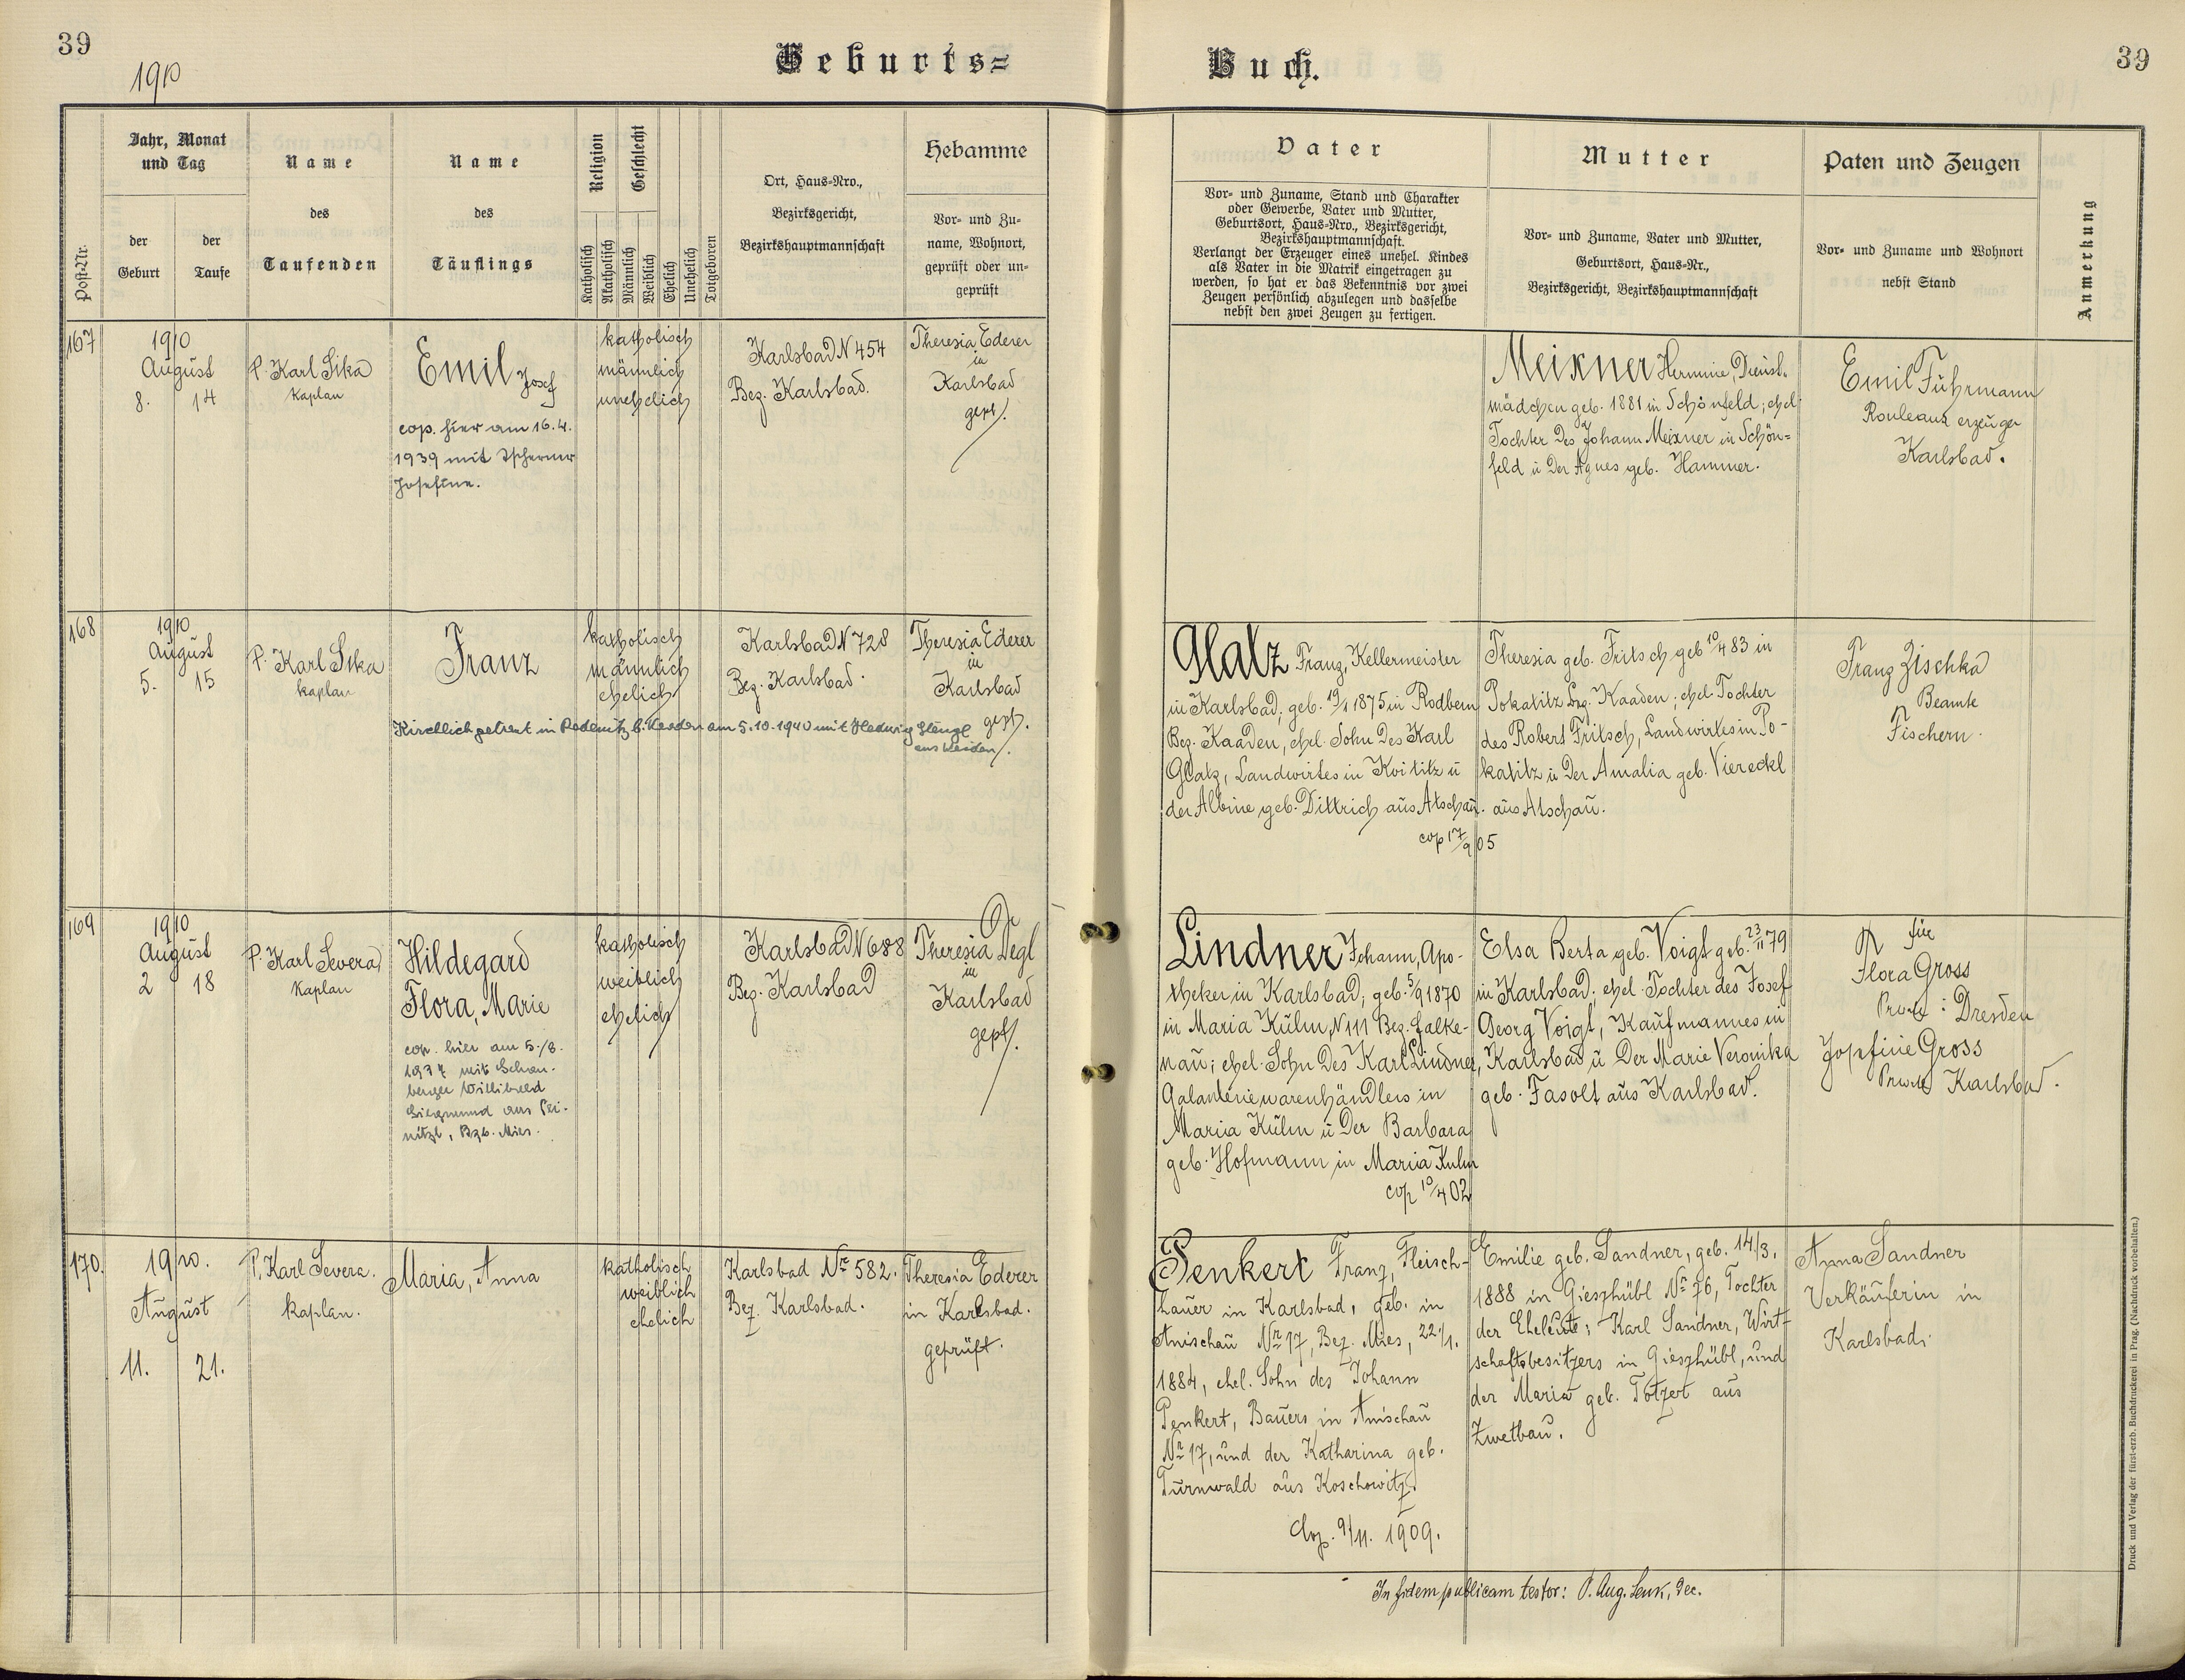 39
1910
Geburts=
Buch.
39
Post-Nr.
Jahr, Monat
und Tag
der
Geburt
der
Taufe
Name
des
Taufenden
Name
des
Täuflings
Religion
Geschlecht
Katholisch
Akatholisch
Männlich
Weiblich
Ehelich
Unehelich
Totgeboren
Ort, Haus-Nro.,
Bezirksgericht,
Bezirkshauptmannschaft
Hebamme
Vor- und Zu-
name, Wohnort,
geprüft oder un-
geprüft
Vater
Vor- und Zuname, Stand und Charakter
oder Gewerbe, Vater und Mutter,
Geburtsort, Haus-Nro., Bezirksgericht,
Bezirkshauptmannschaft.
Verlangt der Erzeuger eines unehel. Kindes
als Vater in die Matrik eingetragen zu
werden, so hat er das Bekenntnis vor zwei
Zeugen persönlich abzulegen und dasselbe
nebst den zwei Zeugen zu fertigen.
Mutter
Vor- und Zuname, Vater und Mutter,
Geburtsort, Haus-Nr.,
Bezirksgericht, Bezirkshauptmannschaft
Paten und Zeugen
Vor- und Zuname und Wohnort
nebst Stand
Anmerkung
167
1910
August
8. 14
P. Karl Sika
Kaplan
Emil Josef
cop. hier am 16.4.
1939 mit
Josefine.
katholisch
männlich
unehelich
Karlsbad N 454
Bez. Karlsbad.
Theresia Ederer
in
Karlsbad
gept.
Meixner Hermine, Dienst-
mädchen geb. 1881 in Schönfeld; ehel.
Tochter des Johann Meixner in Schön=
feld u der Agnes geb. Hammer.
Emil Führmann
Rouleaux erzeuger
Karlsbad.
168
1910
August
5. 15
P. Karl Sika
Kaplan
Franz
Kirchlich getraut in Redenitz b. Kaaden am 5.10.1940 mit Hedwig Stengl
katholisch
männlich
ehelich
Karlsbad N 728
Bez. Karlsbad.
Theresia Ederer
in
Karlsbad
gept.
Glatz Franz, Kellermeister
in Karlsbad; geb. 19/1 1875 in Rodbern
Bez. Kaaden, ehel. Sohn des Karl
Glatz, Landwirtes in Koititz u
der Albine geb. Dittrich aus Atschau.
cop 17/9 05
Theresia geb. Fritsch geb 10/4 83 in
Pokatitz Bzg. Kaaden; ehel. Tochter
des Robert Fritsch, Landwirtes in Po-
katitz u der Amalia geb. Viereckl
aus Atschau.
Franz Zischka
Beamte
Fischern.
169
1910
August
2 18
P. Karl Severa
Kaplan
Hildegard
Flora, Marie
cop. hier am 5./8.
1937 mit Schön-
berger Willibald
Siegmund aus
Bzb. Mies.
katholisch
weiblich
ehelich
Karlsbad N 688
Bez. Karlsbad
Theresia Degl
in
Karlsbad
gept.
Lindner Johann, Apo-
theker in Karlsbad, geb. 5/9 1870
in Maria Kulm, N 111 Bez. Falke-
nau; ehel. Sohn des Karl Lindner,
Galanteriewarenhändlers in
Maria Kulm u der Barbara
geb. Hofmann in Maria Kulm
cop 10/4 02
Elsa Berta geb. Voigt geb. 23/11 79
in Karlsbad. ehel. Tochter des Josef
Georg Voigt, Kaufmannes in
Karlsbad u der Marie Veronika
geb. Fasolt aus Karlsbad.
für
Flora Gross
Dresden
Josefine Gross
Karlsbad.
170.
1910.
August
11. 21.
P. Karl Severa.
Kaplan.
Maria, Anna
katholisch
weiblich
ehelich
Karlsbad Nr 582.
Bez. Karlsbad.
Theresia Ederer
in Karlsbad.
geprüft.
Penkert Franz, Fleisch-
hauer in Karlsbad, geb. in
Anischau Nr 17, Bez. Mies, 22./1.
1884, ehel. Sohn des Johann
Penkert, Bauers in Anischau
Nr 17, und der Katharina geb.
Turnwald aus Koschowitz.
Cop. 9/11. 1909.
Emilie geb. Sandner, geb. 14./3.
1888 in Gieszhübl Nr 76, Tochter
der Eheleute: Karl Sandner, Wirt-
schaftsbesitzers in Gieszhübl, und
der Maria geb. Totzert aus
Zwetbau.
Anna Sandner
Verkäuferin in
Karlsbad.
In fidem publicam testor: P. Aug. Lenk, Dec.
Druck und Verlag der fürst-erzb. Buchdruckerei in Prag. (Nachdruck vorbehalten.)